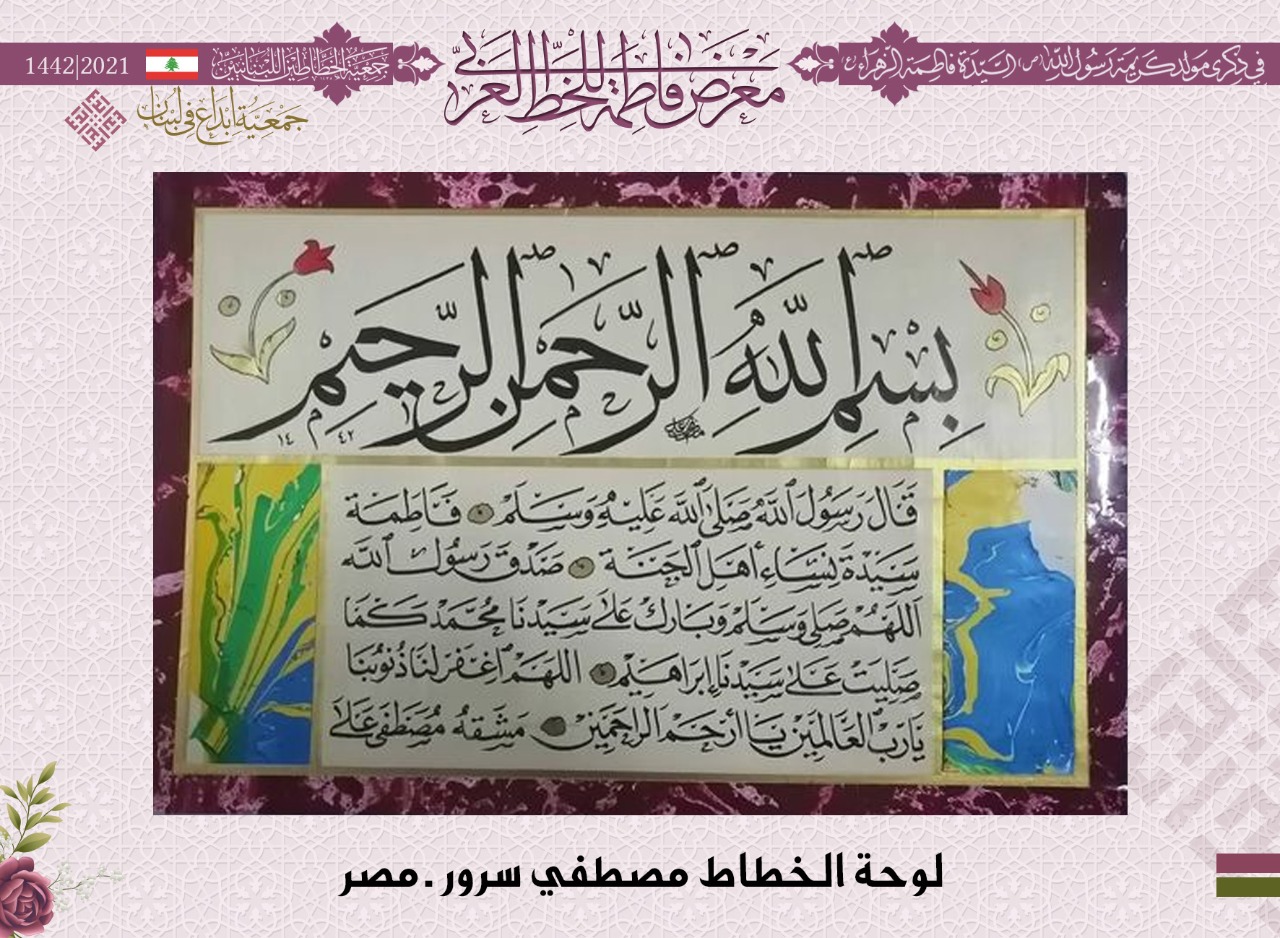 في ذكرى مولد كريمة رسول الله (ص) السيدة فاطمة الزهراء (ع)
معرض فاطمة للخط العربي
جمعية الخطاطين اللبنانيين
1442|2021
جمعية إبداع في لبنان
بِسْمِ اللَّهِ الرَّحْمٰنِ الرَّحِيمِ
١٤ ٤٢
قَالَ رَسُولُ اللَّه صَلَّى اللَّه عَلَيْهِ وَسَلَّمْ فَاطِمَة
سَيِّدَة نِسَاءِ أَهْلِ الْجَنَّة صَدَقَ رَسُولُ اللَّه
اللَّهُمَّ صَلِّ وَسَلِّمْ وَبَارِكْ عَلَى سَيِّدْنَا مُحَمَّدْ كَمَا
صَلَّيْتَ عَلَى سَيِّدْنَا إِبْرَاهِيمْ اللَّهُمَّ اغْفِرْ لَنَا ذُنُوبَنَا
يَارَبَّ الْعَالَمِينْ يَا أَرْحَمَ الرَّاحِمِينْ مَشَقَهُ مُصْطَفَى عَلَى
لوحة الخطاط مصطفي سرور.مصر